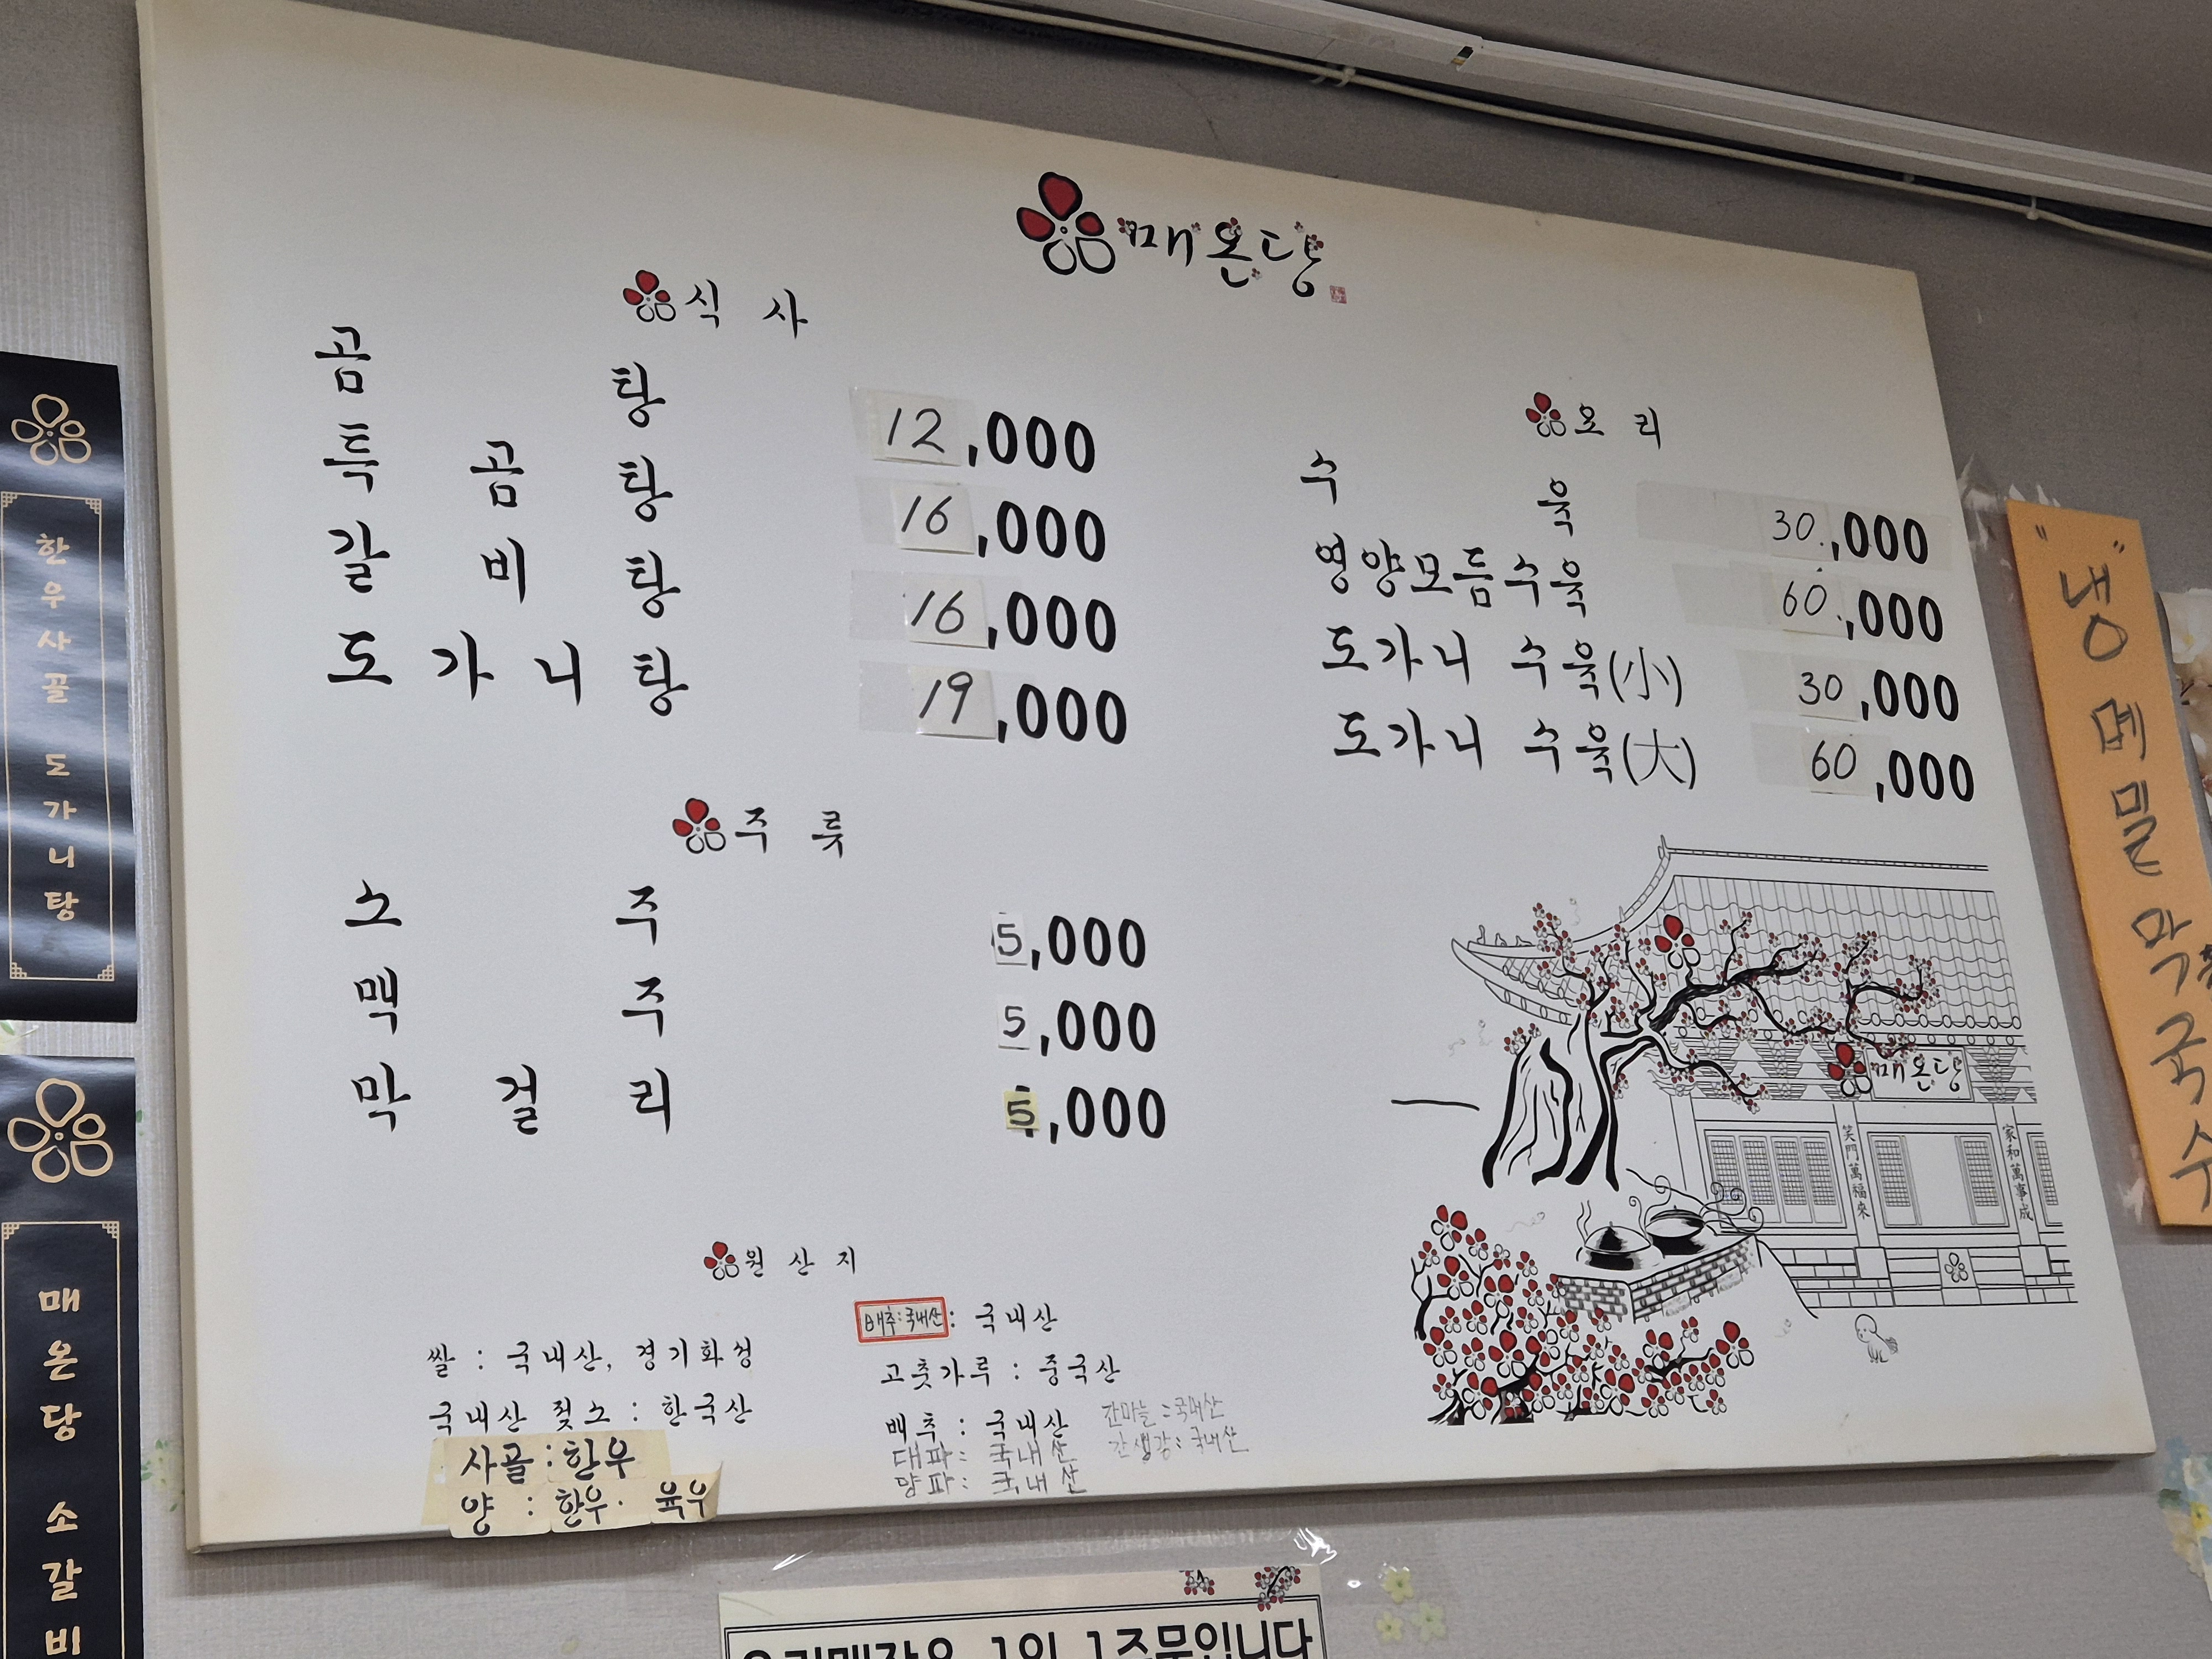 매온당
식 사
곰 탕 12,000
특 곰 탕 16,000
갈 비 탕 16,000
도 가 니 탕 19,000
요 리
수 육 30,000
영양모듬수육 60,000
도가니 수육(小) 30,000
도가니 수육(大) 60,000
주 류
소 주 5,000
맥 주 5,000
막 걸 리 5,000
원 산 지
쌀 : 국내산, 경기화성
국내산 젖소 : 한국산
사골 : 한우
양 : 한우· 육우
배추:국내산 : 국내산
고춧가루 : 중국산
배추 : 국내산
대파 : 국내산
양파 : 국내산
간마늘 : 국내산
간생강 : 국내산
매온당
笑門萬福來
家和萬事成
한우사골 도가니탕
매온당 소갈비
"냉"메밀막국수
우리매장은 1인 1주문입니다